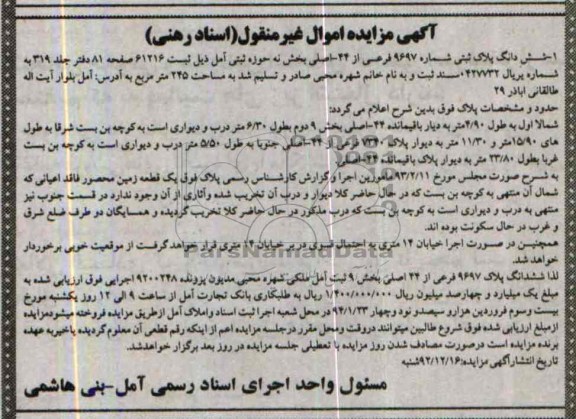 آگهی مزایده اموال غیر منقول (اسناد رهنی)
۱-شش دانگ پلاک ثبتی شماره ۹۶۹۷ فرعی از ۴۴-اصلی بخش نه حوزه ثبتی آمل ذیل ثبت ۶۱۲۱۶ صفحه ۸۱ دفتر جلد ۳۱۹ به
شماره سریال ۰۴۴۷۷۳۲ سند ثبت و به نام خانم شهره محبی صادر و تسلیم شد به مساحت ۲۴۵ متر مربع به آدرس: آمل بلوار آیت اله
طالقانی اباذر ۲۹
حدود و مشخصات پلاک فوق بدین شرح اعلام می گردد:
شمالا اول به طول ۴/۹۰ متر به دیار باقیمانده ۴۴-اصلی بخش ۹ دوم بطول ۶/۳۰ متر درب و دیواری است به کوچه بن بست شرقا به طول
های ۱۵/۹۰ متر و ۱۱/۳۰ متر به دیوار پلاک ۷۴۰ فرعی از ۴۴-اصلی جنوبا به طول ۵/۵۰ متر درب و دیواری است به کوچه بن بست
غربا بطول ۲۳/۸۰ متر به دیوار پلاک باقیمانده ۴۴-اصلی
به شرح صورت مجلس مورخ ۹۳/۲/۱۱ مامورین اجرا و گزارش کارشناس رسمی پلاک فوق یک قطعه زمین محصور فاقد اعیانی که
شمال آن منتهی به کوچه بن بست که در حال حاضر کلا دیوار و درب آن تخریب شده و آثاری از آن وجود ندارد در قسمت جنوب نیز
منتهی به درب و دیواری است به کوچه بن بست که درب مذکور در حال حاضر کلا تخریب گردیده و همسایگان در طرف ضلع شرق
و غرب در حال سکونت بوده اند.
همچنین در صورت اجرا خیابان ۱۴ متری به احتمال قوی در بر خیابان ۱۴ متری قرار خواهد گرفت از موقعیت خوبی برخوردار
خواهد شد.
لذا ششدانگ پلاک ۹۶۹۷ فرعی از ۴۴ اصلی بخش ۹ ثبت آمل ملکی شهره محبی مدیون پرونده ۹۲۰۰۲۴۸ اجرایی فوق ارزیابی شده به
مبلغ یک میلیارد و چهارصد میلیون ریال ۱/۴۰۰/۰۰۰/۰۰۰ ریال به طلبکاری بانک تجارت آمل از ساعت ۹ الی ۱۲ روز یکشنبه مورخ
بیست وسوم فروردین هزارو سیصدو نود وچهار ۹۴/۱/۲۳ در محل شعبه اجرا ثبت اسناد واملاک آمل ازطریق مزایده فروخته میشود مزایده
از مبلغ ارزیابی شده فوق شروع طالبین میتوانند دروقت ومحل مقرر درجلسه مزایده اعم از اینکه رقم قطعی آن معلوم گردیده یاخیربه عهده
برنده مزایده است درصورت مصادف شدن روز مزایده با تعطیلی جلسه مزایده در روز بعد برگزار خواهدشد.
تاریخ انتشار آگهی مزایده: ۹۳/۱۲/۱۶ شنبه
مسئول واحد اجرای اسناد رسمی آمل-بنی هاشمی
ParsNamadData